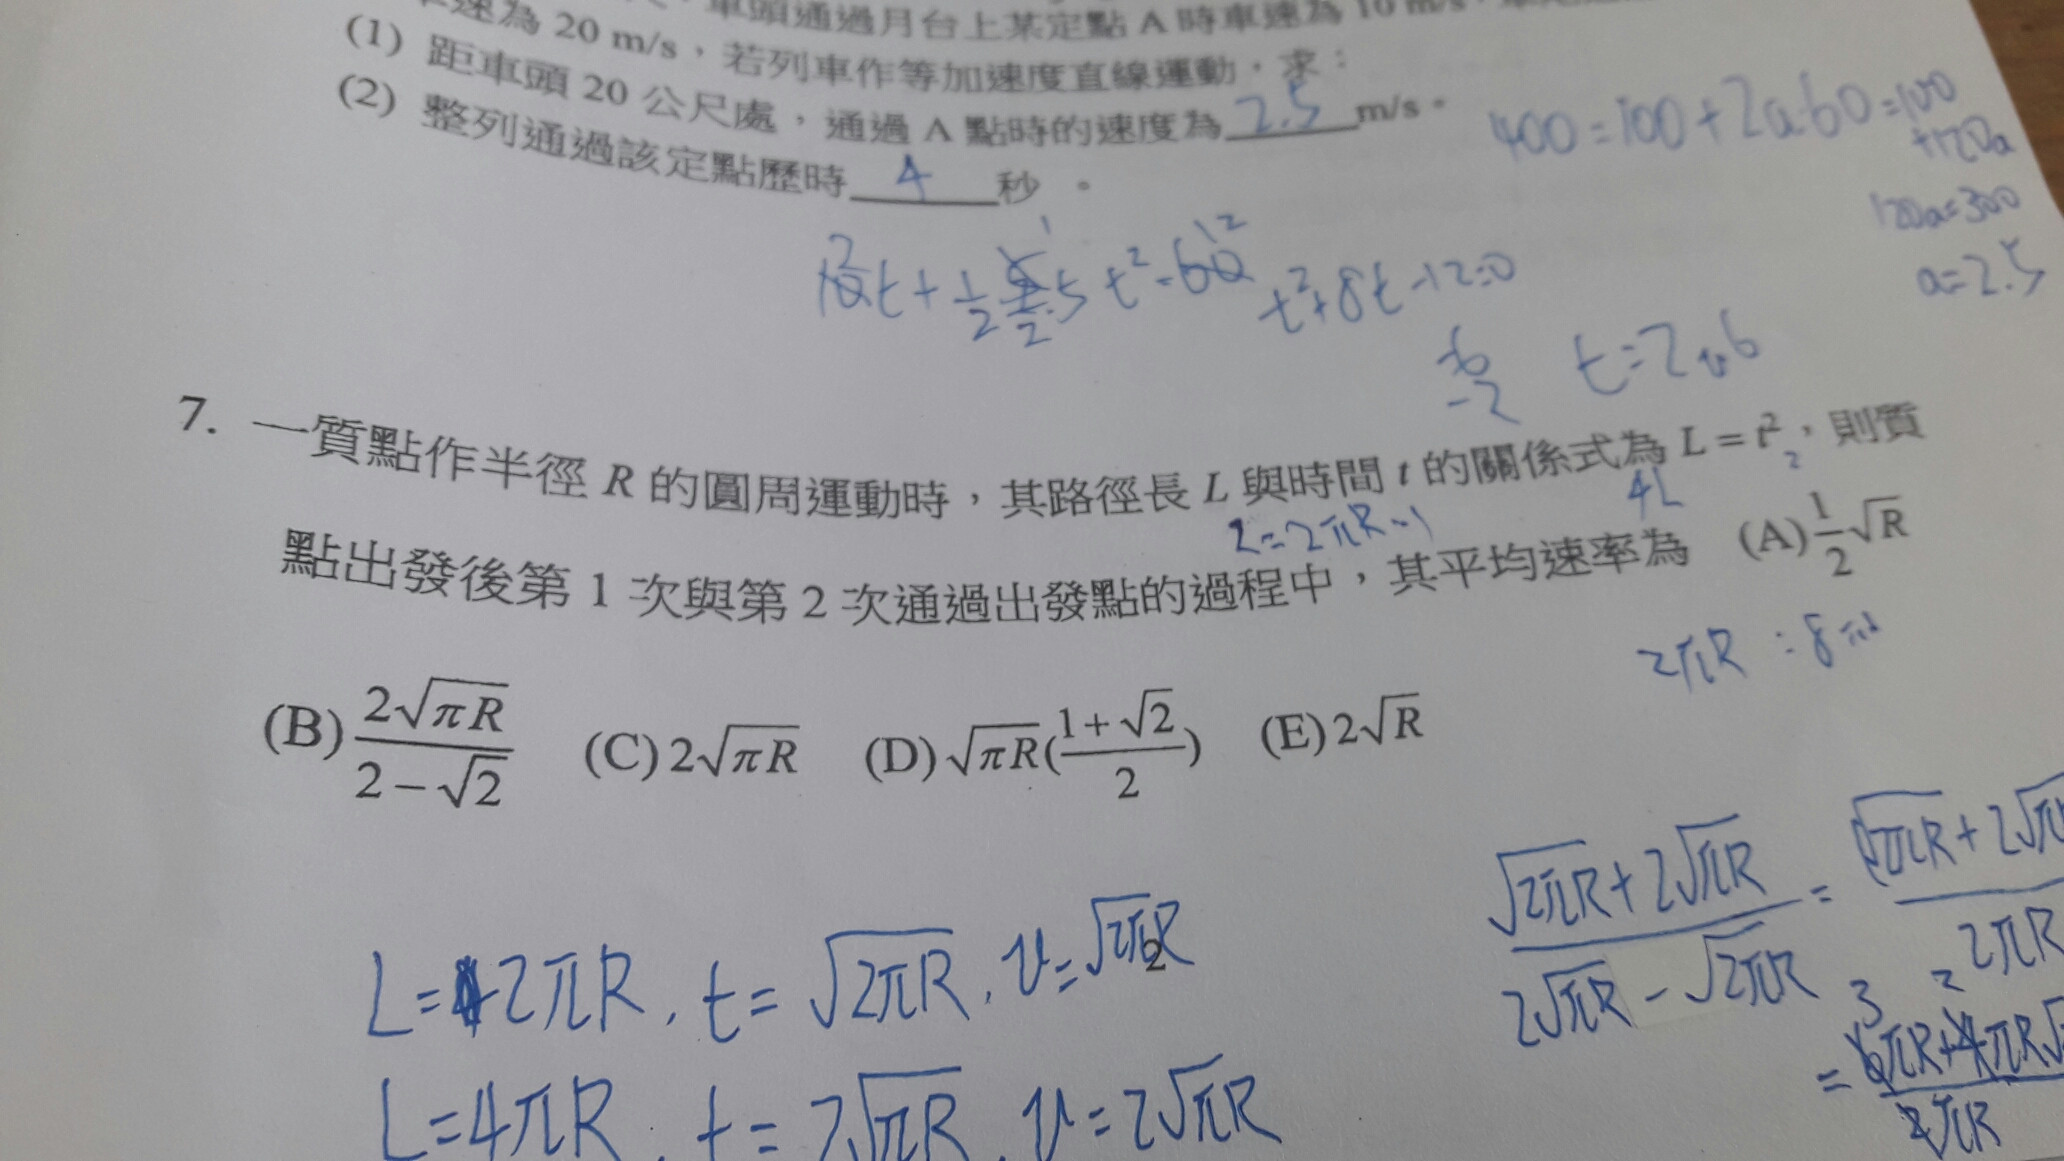 車頭通過月台上某定點 A 時車速為 10 m/s，
速為 20 m/s，若列車作等加速度直線運動，求：
(1) 距車頭 20 公尺處，通過 A 點時的速度為 2.5 m/s。
(2) 整列通過該定點歷時 4 秒。
400=100+2a·60=100
+120a
120a=300
a=2.5
t²+8t-12=0
-2
t=2
7. 一質點作半徑 R 的圓周運動時，其路徑長 L 與時間 t 的關係式為 L = t²，則質
4L
點出發後第 1 次與第 2 次通過出發點的過程中，其平均速率為 (A) 1/2 √R
2πR : 8
(B) 2√πR / 2−√2 (C) 2√πR (D) √πR(1+√2 / 2) (E) 2√R
√2πR+2√πR / 2√πR−√2πR =
2πR
L=2πR, t=√2πR, v=√2πR
L=4πR, t=2√πR, v=2√πR